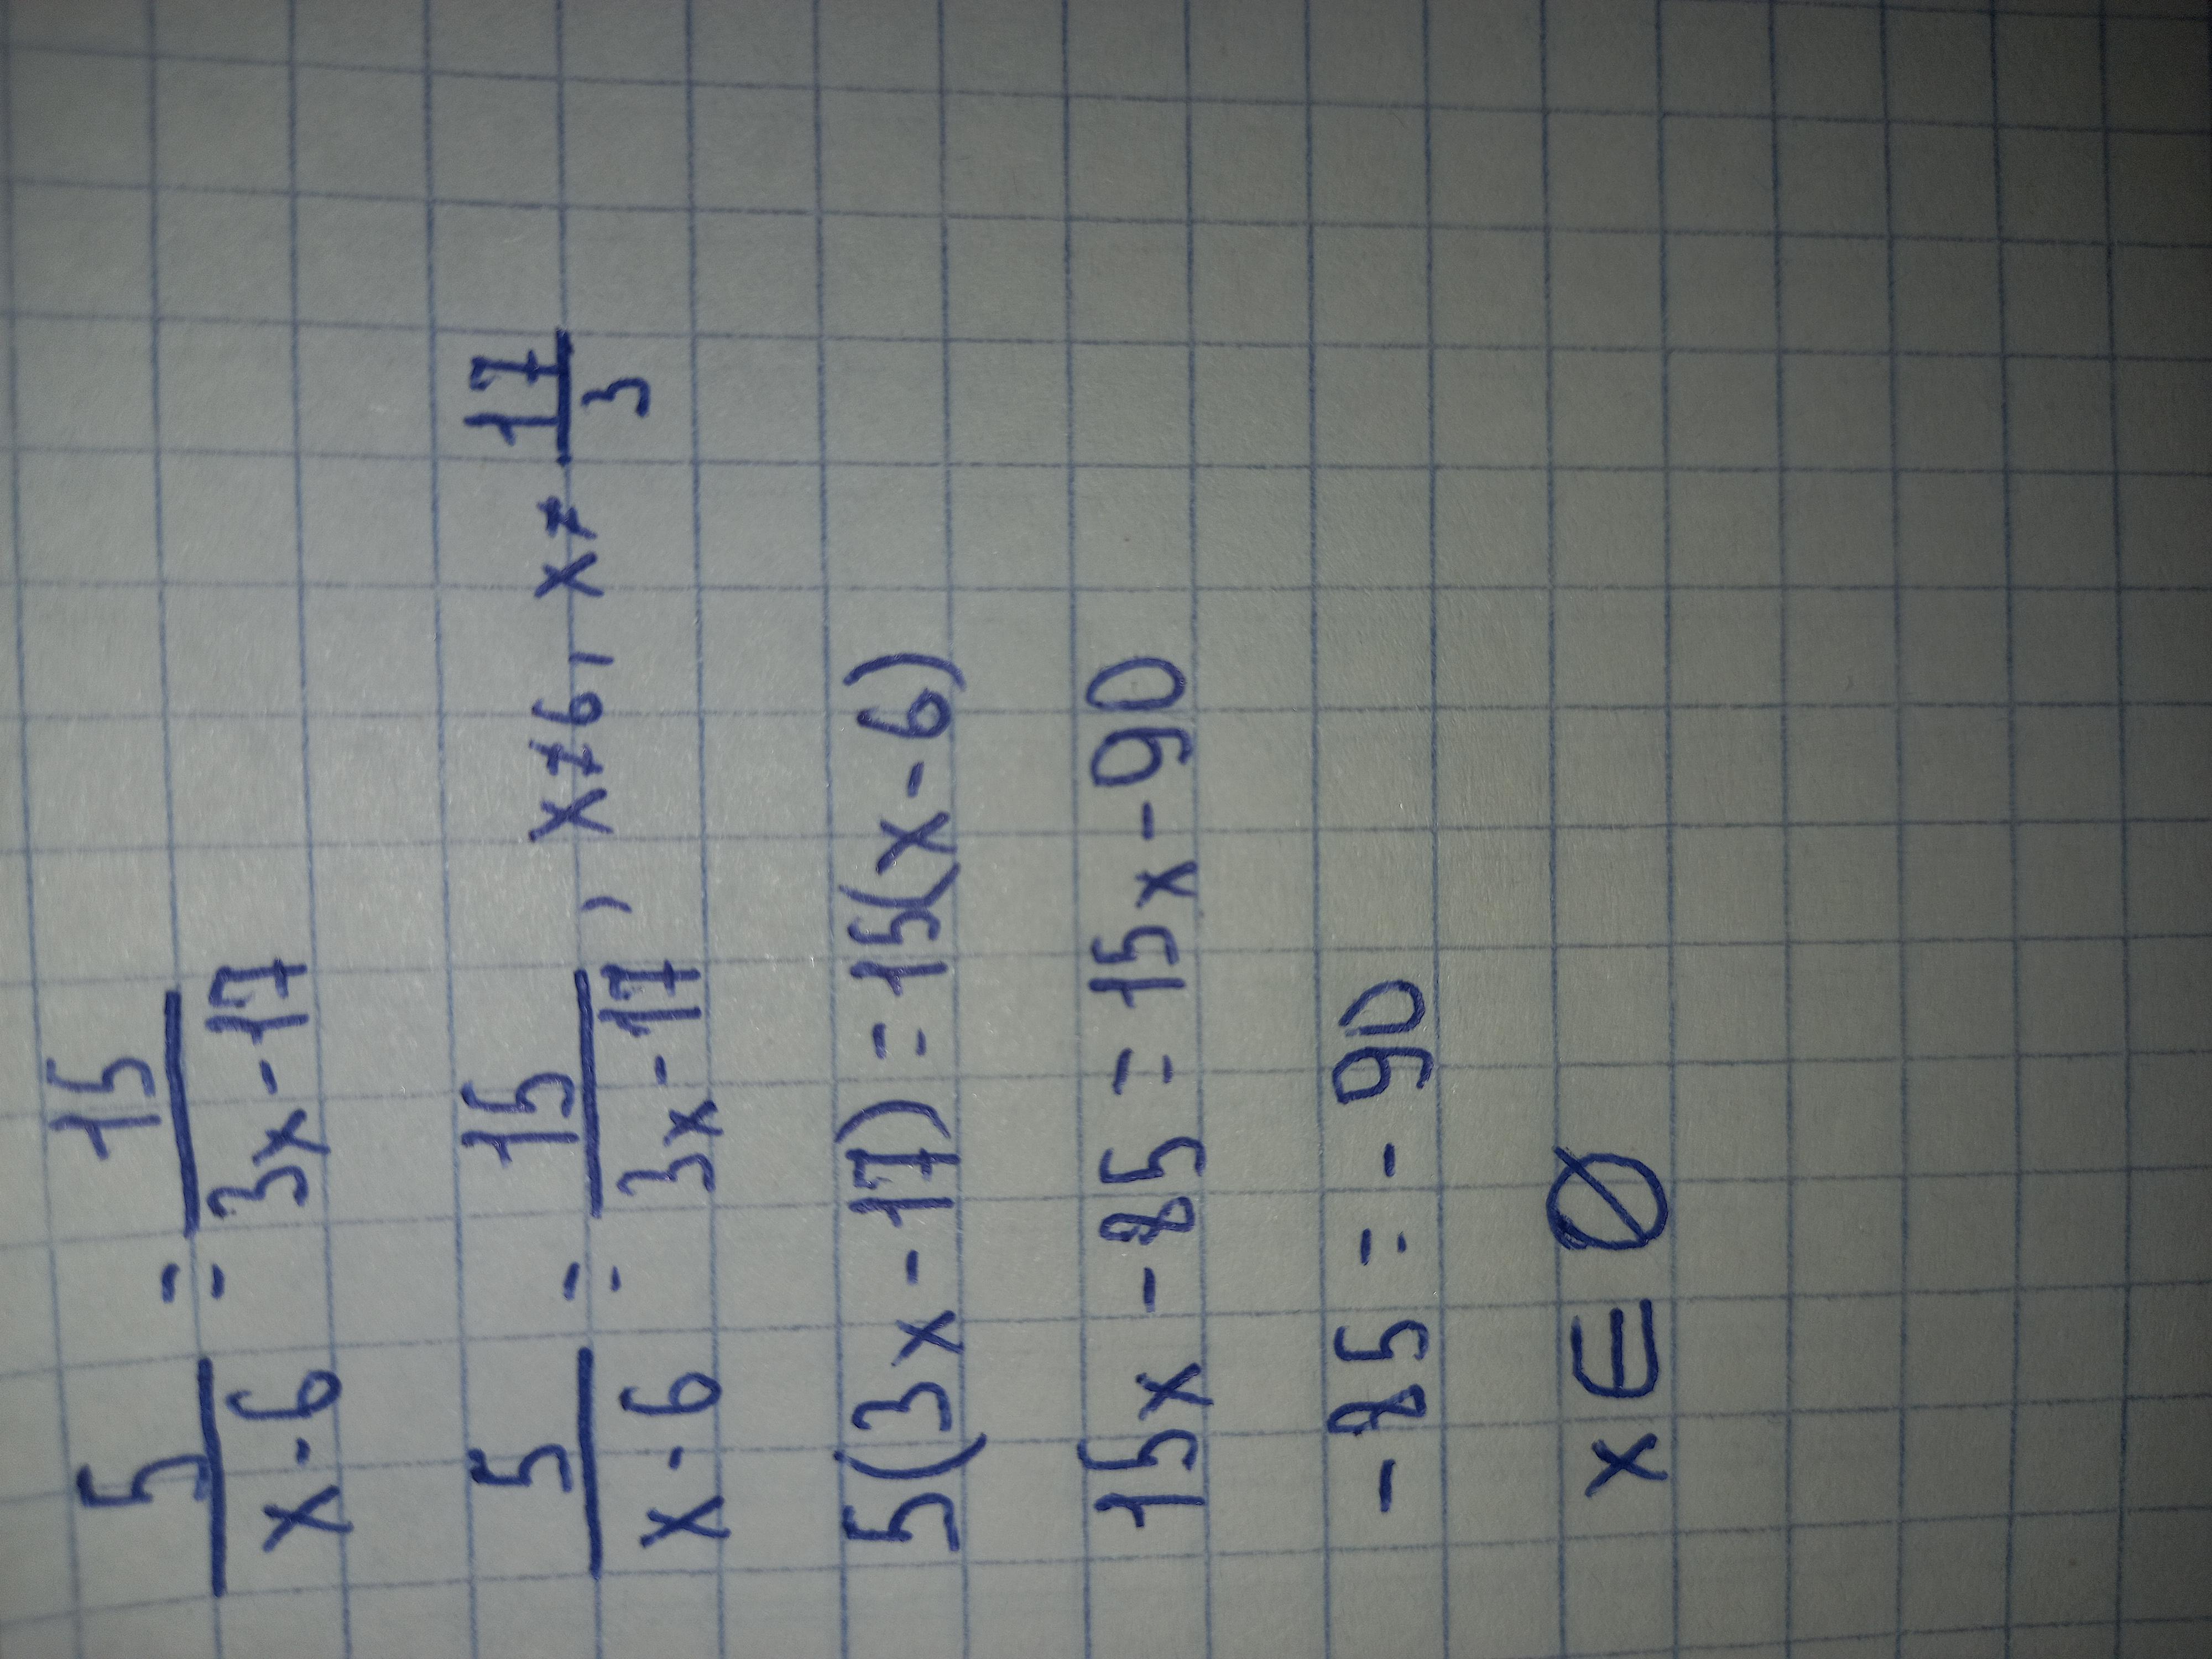 5/(x-6) = 15/(3x-17)
5/(x-6) = 15/(3x-17), x≠6, x≠17/3
5(3x-17) = 15(x-6)
15x-85 = 15x-90
-85 = -90
x∈∅